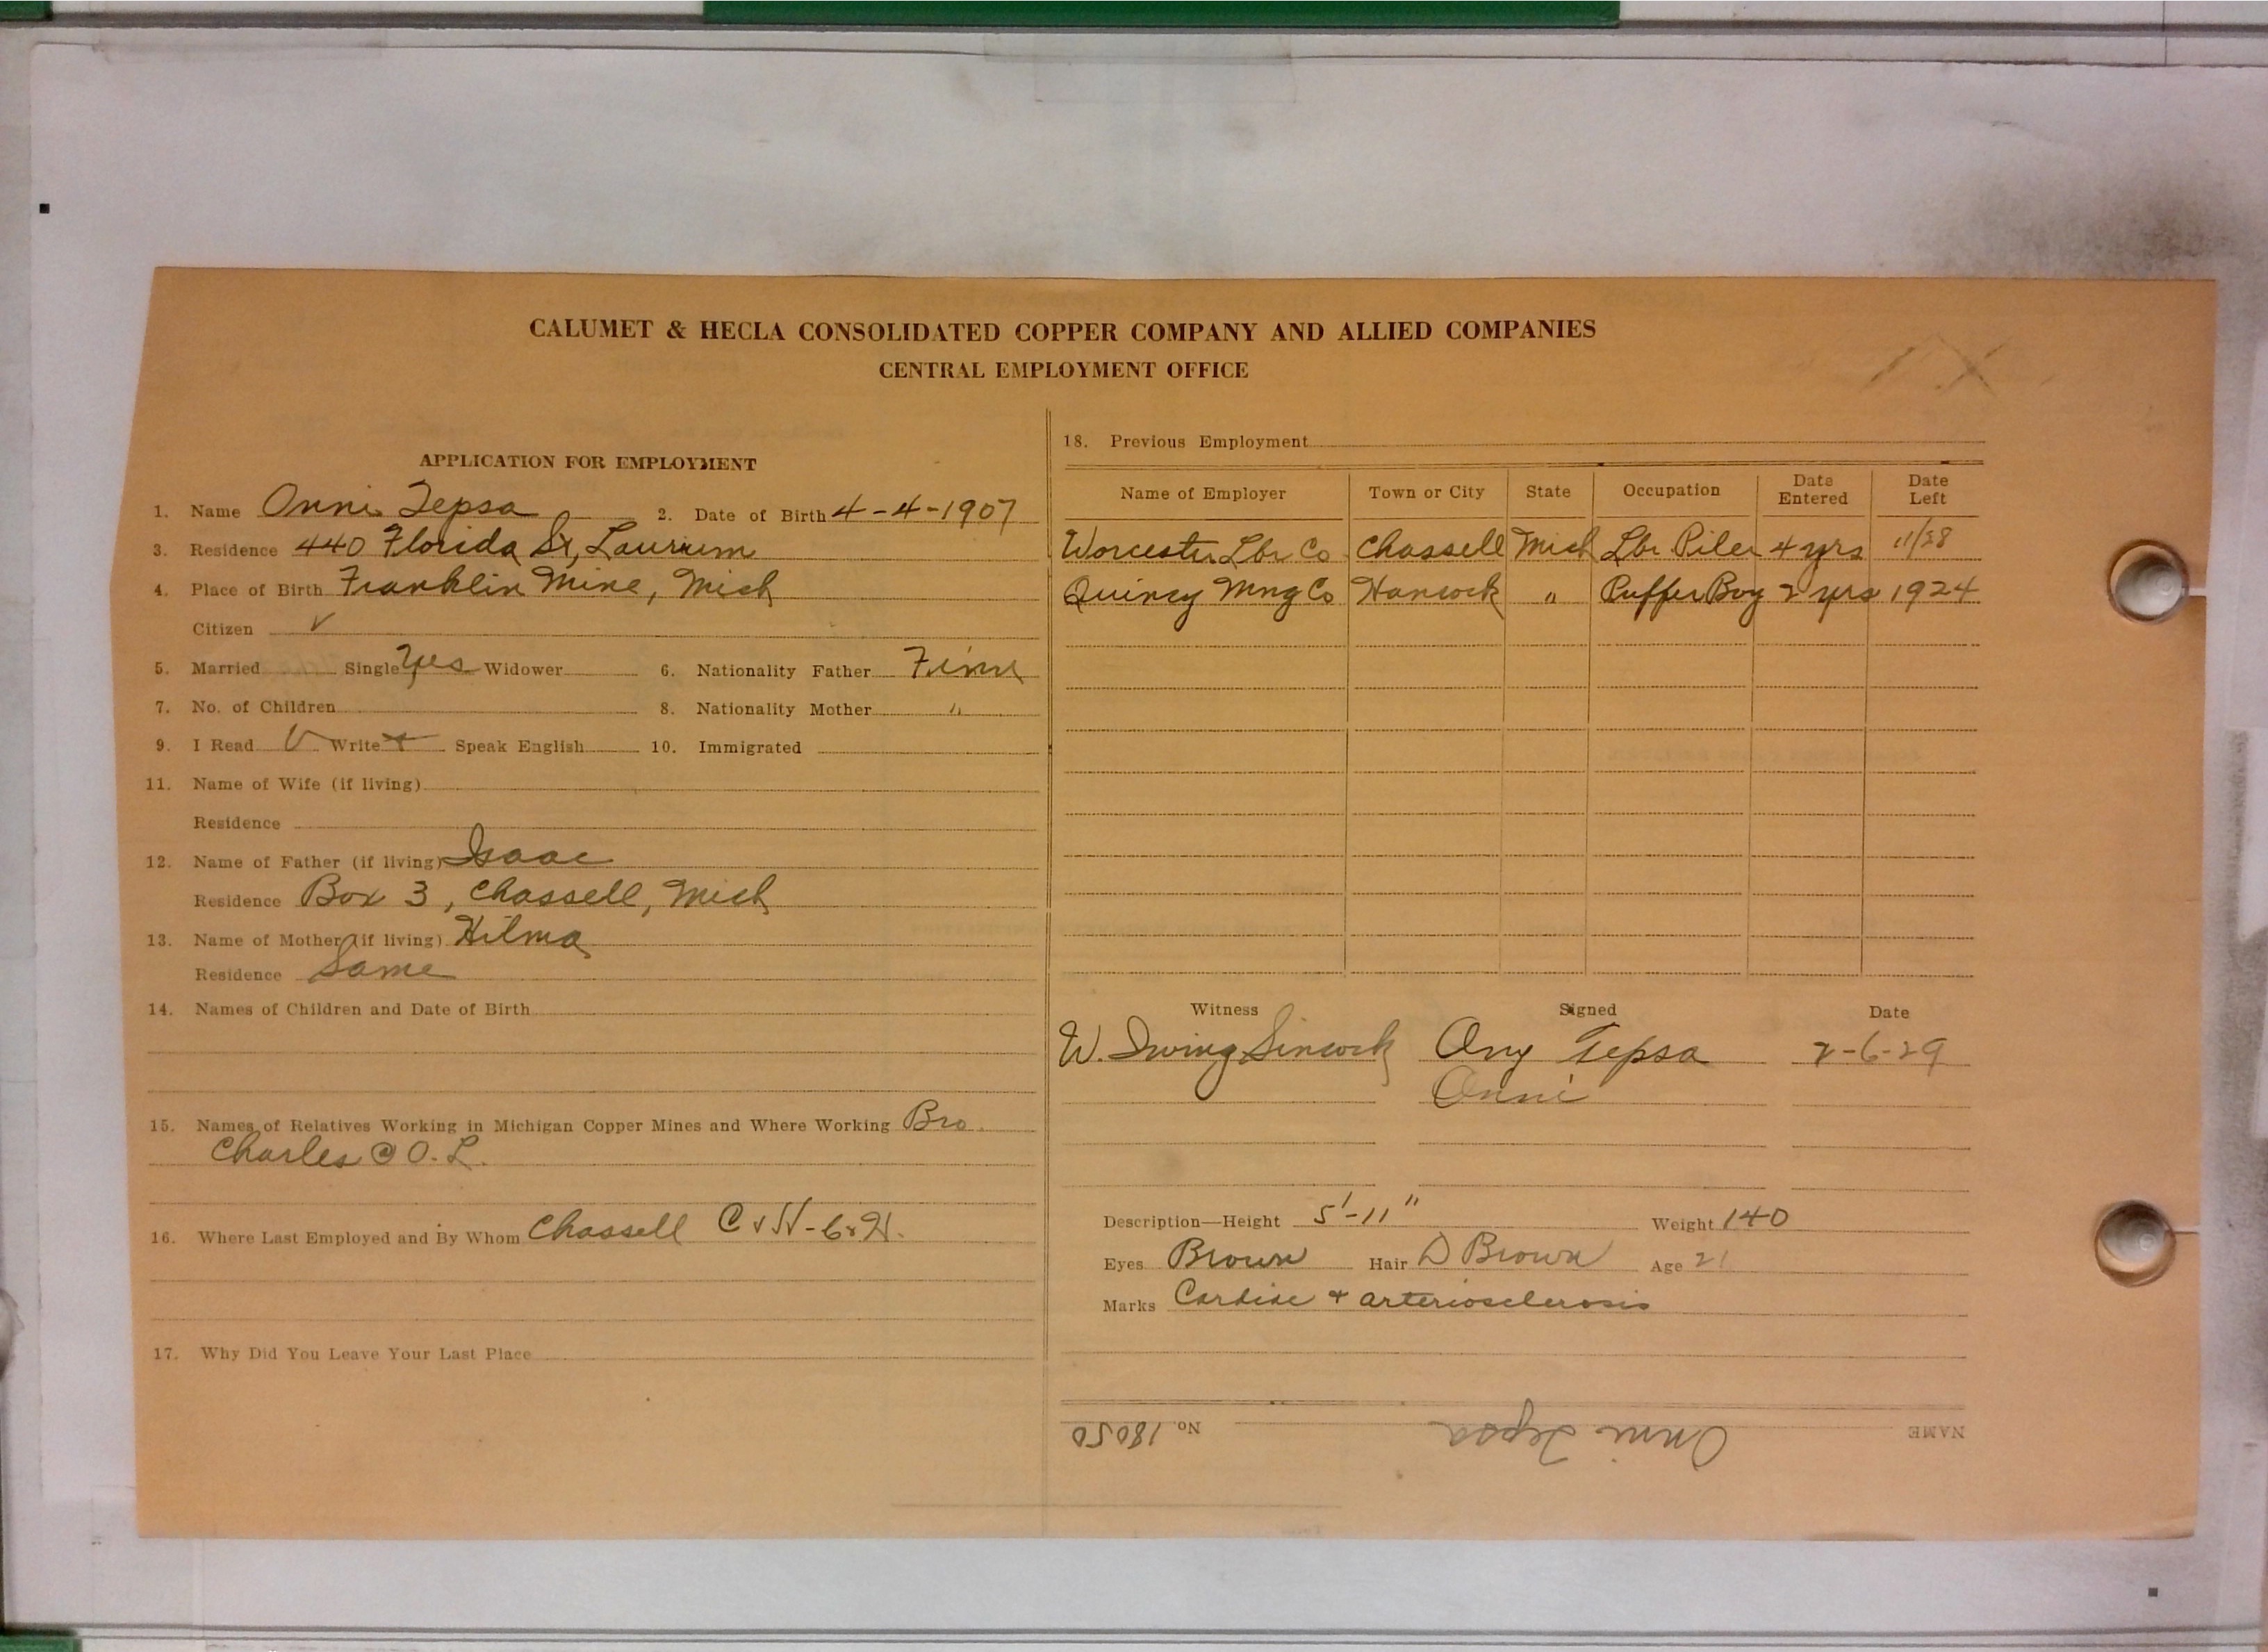 CALUMET & HECLA CONSOLIDATED COPPER COMPANY AND ALLIED COMPANIES
CENTRAL EMPLOYMENT OFFICE
APPLICATION FOR EMPLOYMENT
1. Name Onni Tepsa 2. Date of Birth 4-4-1907
3. Residence 440 Florida St, Laurium
4. Place of Birth Franklin Mine, Mich
Citizen ✓
5. Married Single Yes Widower 6. Nationality Father Finn
7. No. of Children 8. Nationality Mother "
9. I Read ✓ Write + Speak English 10. Immigrated
11. Name of Wife (if living)
Residence
12. Name of Father (if living) Isaac
Residence Box 3, Chassell, Mich
13. Name of Mother (if living) Hilma
Residence Same
14. Names of Children and Date of Birth
15. Names of Relatives Working in Michigan Copper Mines and Where Working Bro.
Charles @ O. L.
16. Where Last Employed and By Whom Chassell
17. Why Did You Leave Your Last Place
18. Previous Employment
Name of Employer Town or City State Occupation Date Entered Date Left
Worcester Lbr Co Chassell Mich Lbr. Piler 4 yrs 11/28
Quincy Mng Co Hancock " Puffer Boy 2 yrs 1924
Witness Signed Date
W. Irving Sincock Ony Tepsa 2-6-29
Onni
Description—Height 5'-11" Weight 140
Eyes Brown Hair D Brown Age 21
Marks Cardiac + arteriosclerosis
NAME Onni Tepsa No. 18050